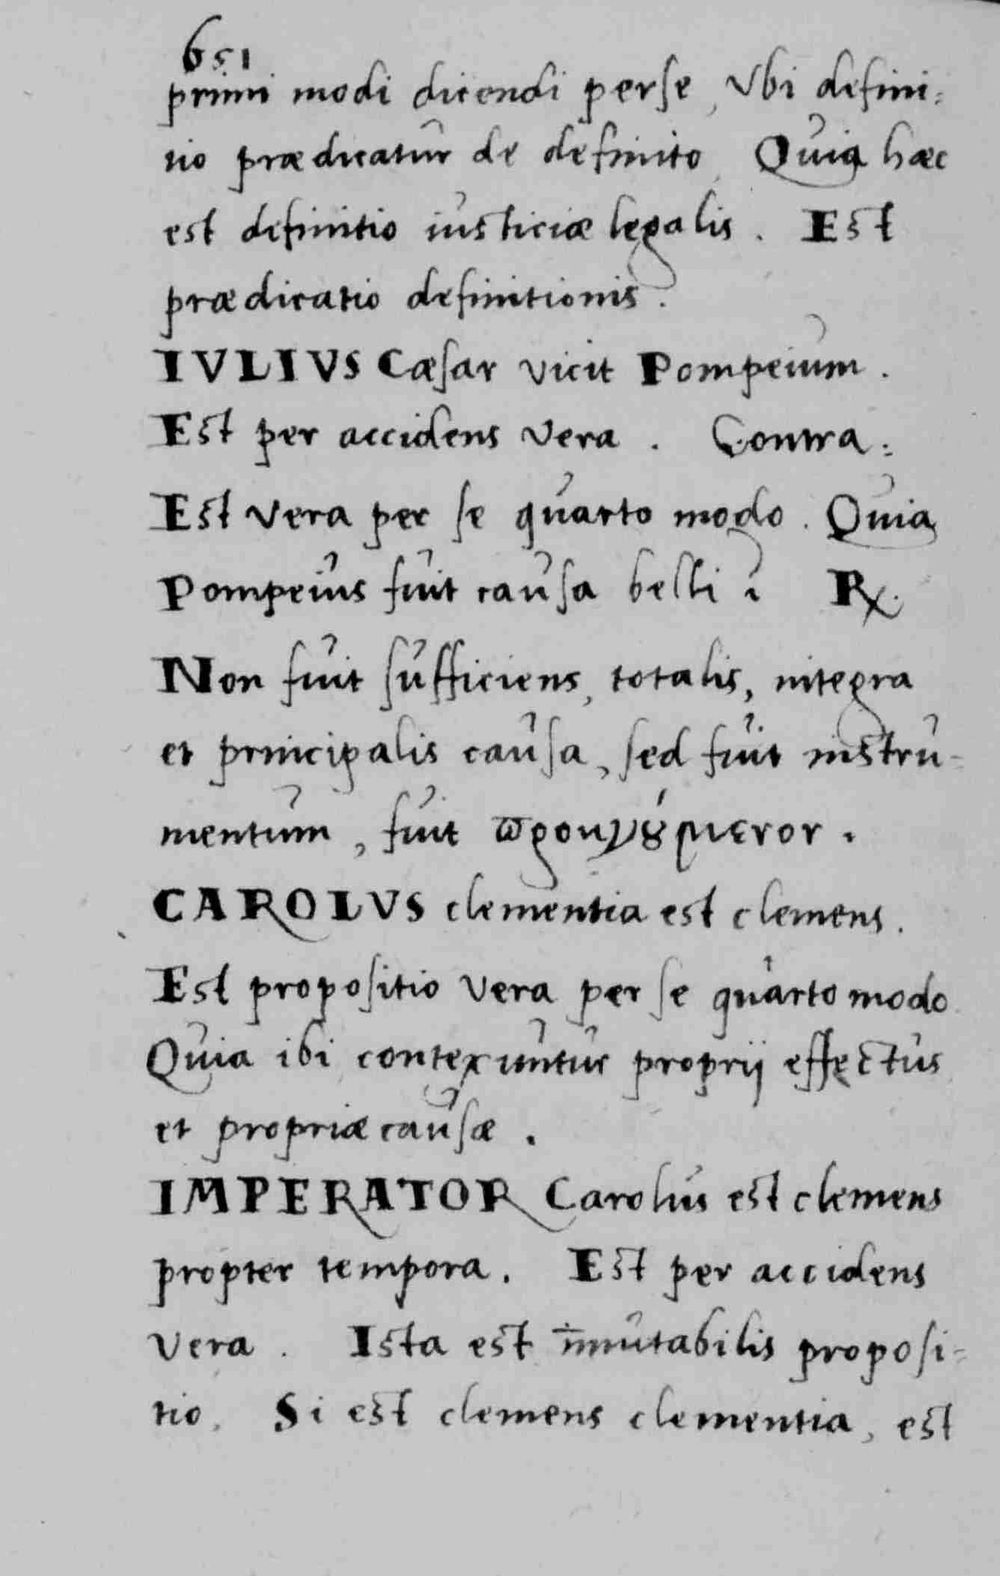 651
primi modi dicendi perse, Vbi defini:
tio prædicatur de definito, Quia hæc
est definitio iusticiæ legalis. Est
prædicatio definitionis.
IVLIVS Cæsar vicit Pompeium.
Est per accidens vera. Contra:
Est vera per se quarto modo. Quia
Pompeius fuit causa belli? R.
Non fuit sufficiens, totalis, integra
et principalis causa, sed fuit instru-
mentum, fuit προηγούμενον.
CAROLVS clementia est clemens.
Est propositio vera per se quarto modo
Quia ibi contexuntur proprij effectus
et propriæ causæ.
IMPERATOR Carolus est clemens
propter tempora. Est per accidens
vera. Ista est immutabilis proposi=
tio. Si est clemens clementia, est